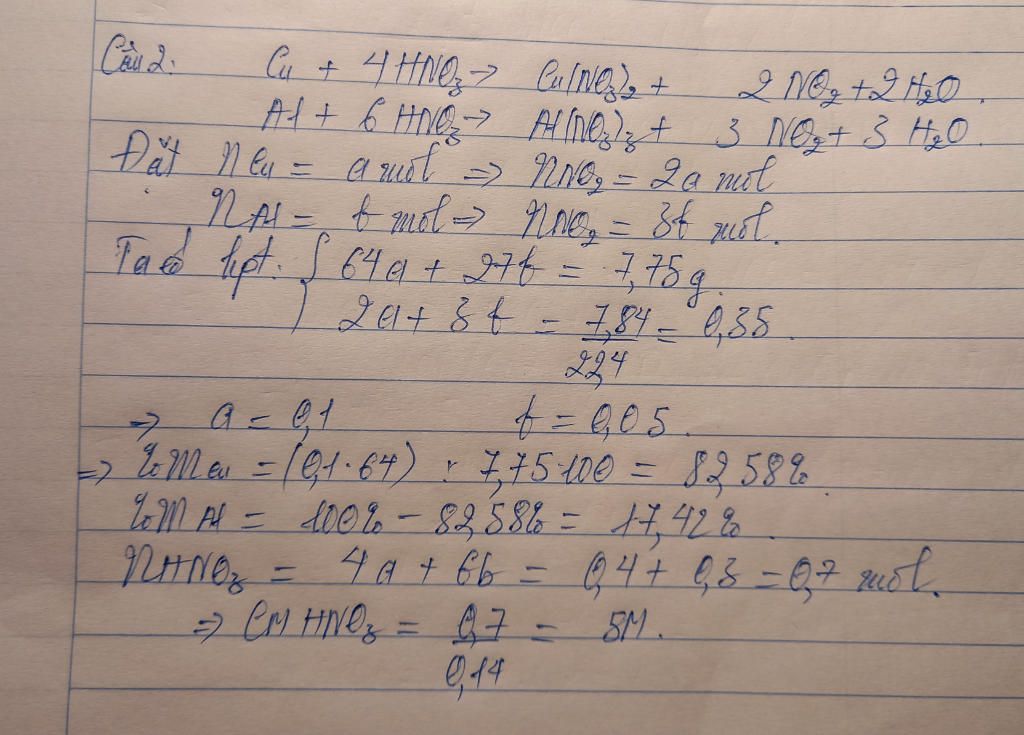 Câu 2: Cu + 4HNO3 → Cu(NO3)2 + 2NO2 + 2H2O.
Al + 6HNO3 → Al(NO3)3 + 3NO2 + 3H2O.
Đặt nCu = a mol => nNO2 = 2a mol
nAl = b mol => nNO2 = 3b mol.
Ta có hpt: { 64a + 27b = 7,75g.
2a + 3b = 7,84/22,4 = 0,35.
=> a = 0,1 b = 0,05.
=> %mCu = (0,1·64) : 7,75·100 = 82,58%.
%mAl = 100% - 82,58% = 17,42%.
nHNO3 = 4a + 6b = 0,4 + 0,3 = 0,7 mol.
=> CM HNO3 = 0,7/0,14 = 5M.